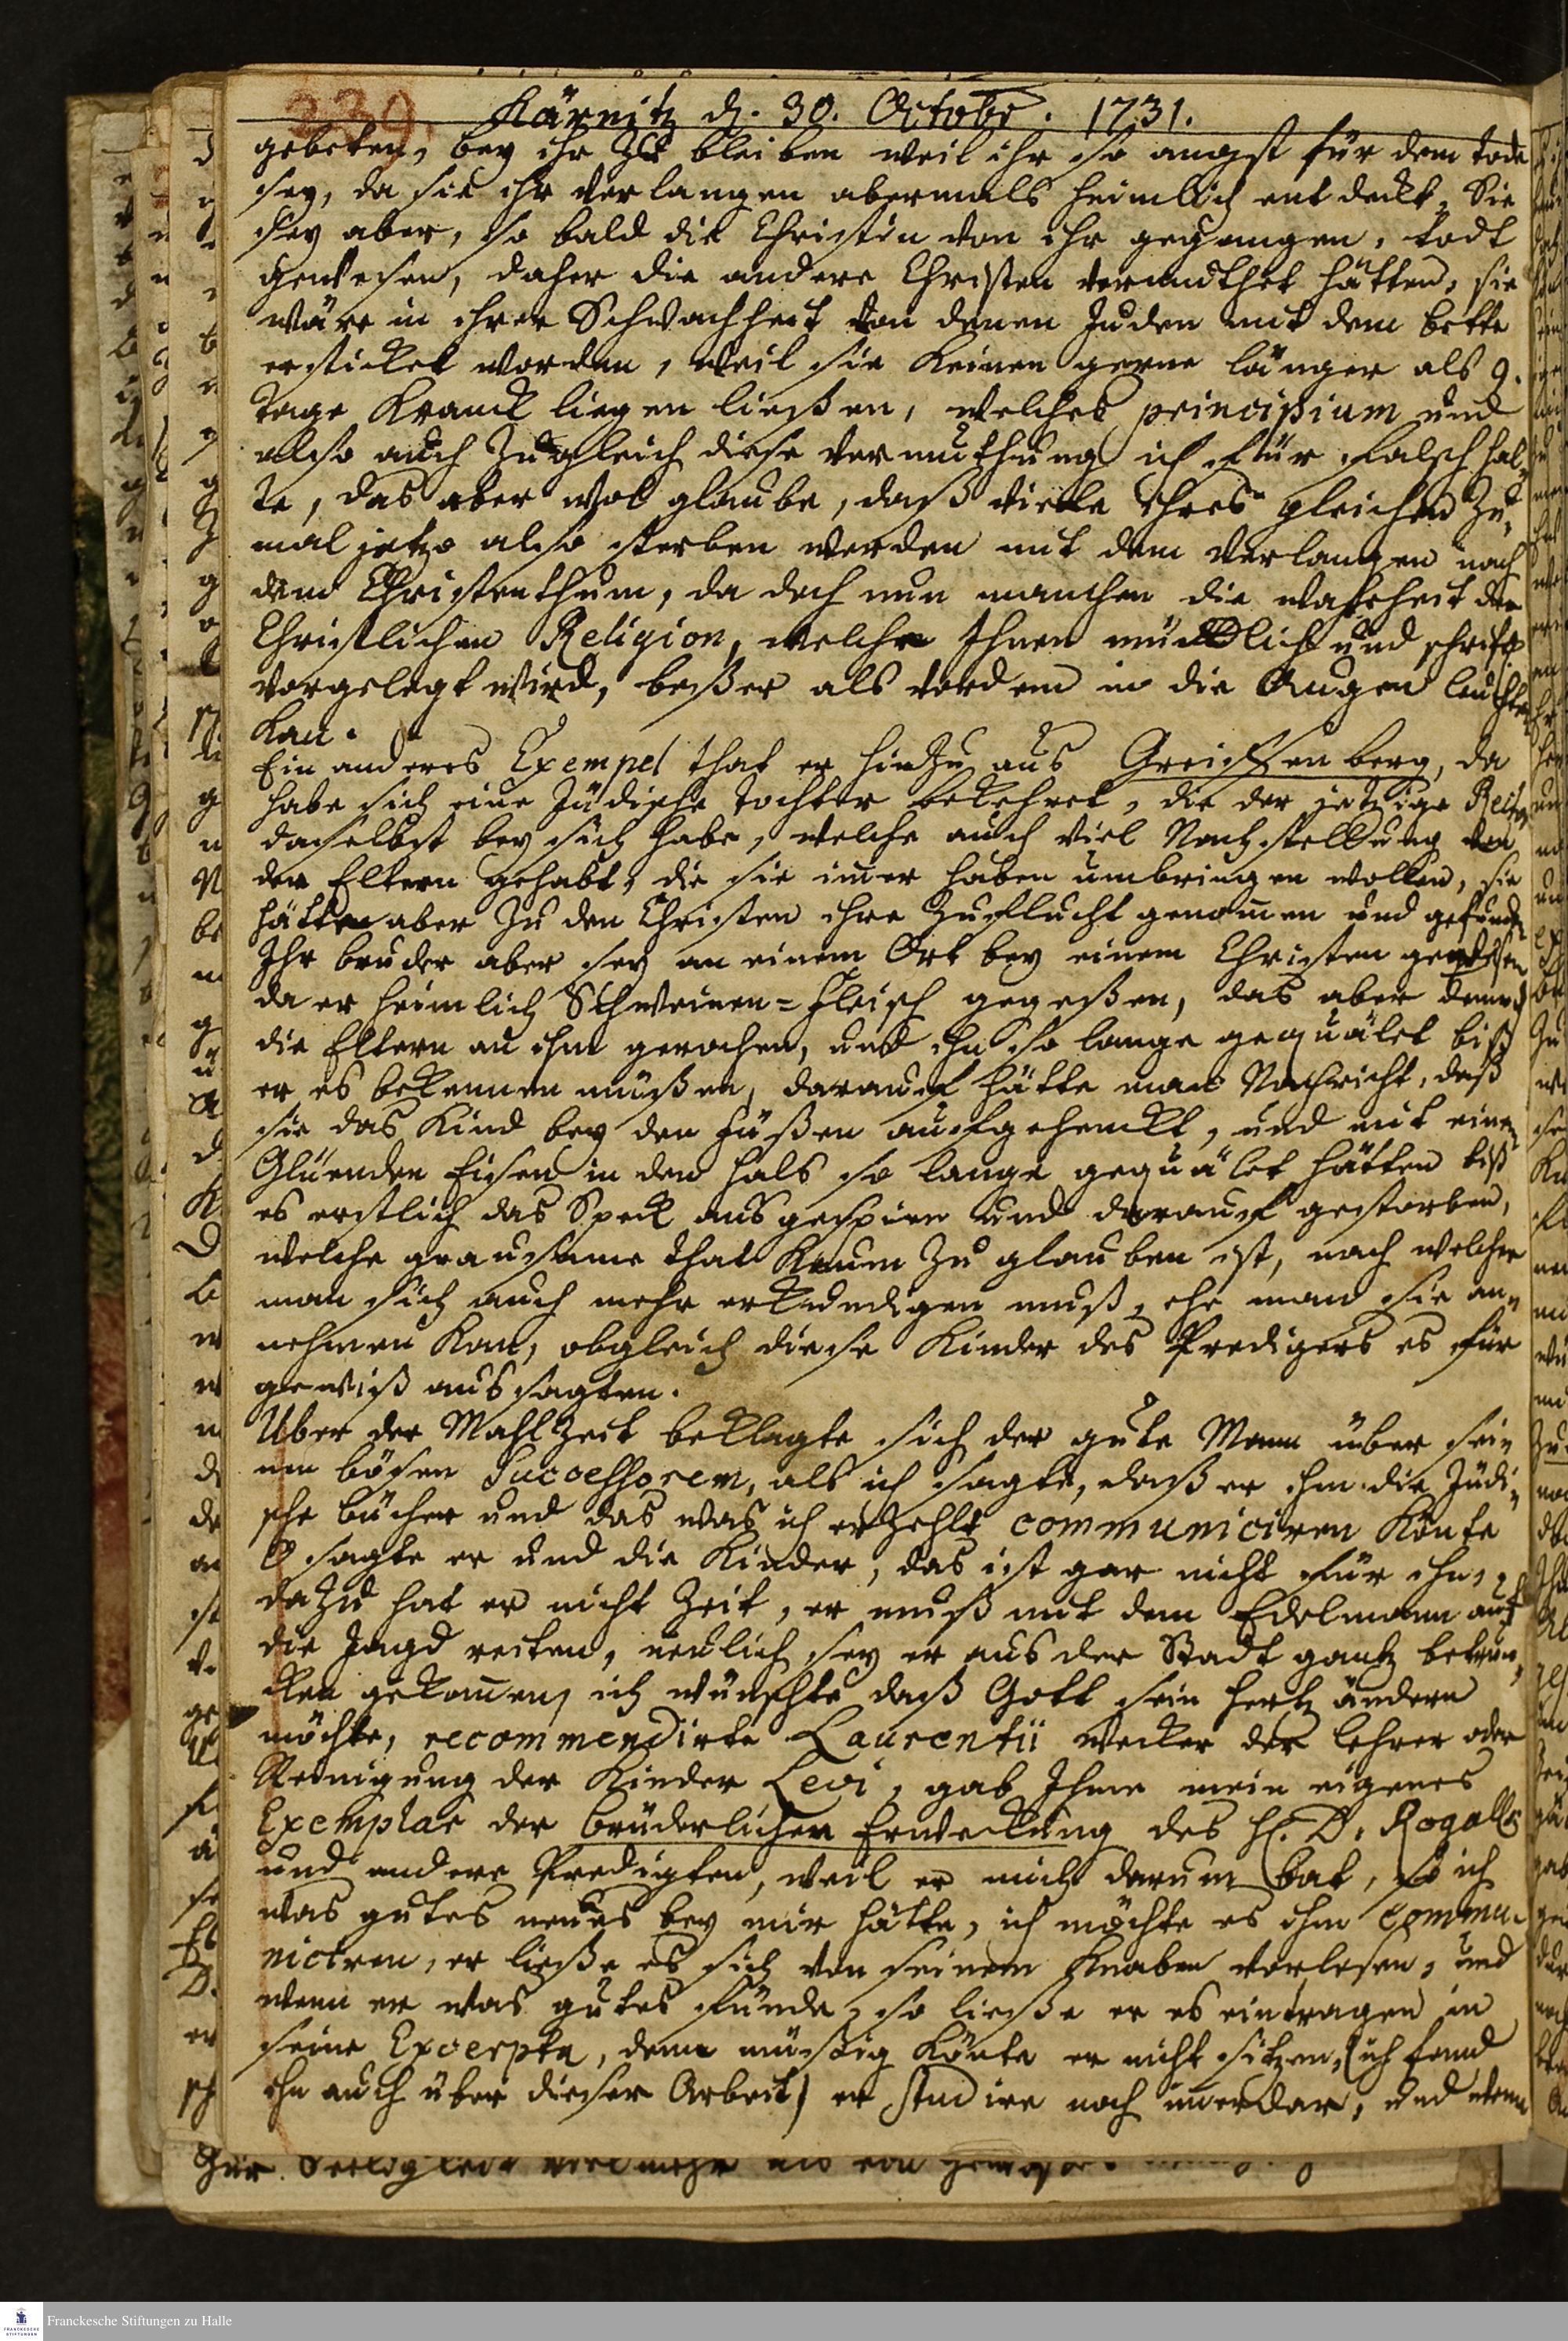 239. Kärnitz d. 30. Octobr. 1731.
gebeten, bey ihr zu bleiben weil ihr so angst für dem tode
sey, da sie ihr verlangen abermals heimlich entdeckt, Sie
sey aber, so bald die Christin von ihr gegangen, todt
gewesen, daher die andere Christen vermuthet hätten, sie
wäre in ihrer Schwachheit von denen Juden mit dem bette
ersticket worden, weil sie keinen gerne länger als 9.
tage kranck liegen ließen, welches principium und
also auch zugleich diese vermuthung ich für falsch hal-
te, das aber wol glaube, daß viele ihres gleichen zu-
mal jetzo also sterben werden mit dem verlangen nach
dem Christenthum, da doch nun manchen die wahrheit der
Christlichen Religion, welche Ihnen mündlich und schriftl.
vorgelegt wird, beßer als vordem in die Augen leuchten
kan.
Ein anderes Exempel that er hinzu aus Greiffenberg, da
habe sich eine Jüdische tochter bekehret, die der jetzige
daselbst bey sich habe, welche auch viel Nachstellung von
den Eltern gehabt, die sie im̅er haben umbringen wollen, sie
hätte aber zu den Christen ihre Zuflucht genom̅en und gefunden
Ihr bruder aber sey an einem Ort bey einem Christen gewesen
da er heimlich Schweinen-Fleisch gegeßen, das aber
die Eltern an ihm gerochen, und ihn so lange gequälet biß
er es bekennen müßen, darauf hätte man Nachricht, daß
sie das Kind bey den Füßen aufgehenckt, und mit einem
Glüenden Eisen in den Hals so lange gequälet hätten biß
es erstlich das Speck ausgespien und darauf gestorben,
welche grausame that kaum zu glauben ist, nach welcher
man sich auch mehr erkundigen muß, ehe man sie an-
nehmen kan, obgleich diese Kinder des Predigers es für
gewiß aussagten.
Uber der Mahlzeit beklagte sich der gute Mann über sei-
nen bösen Successorem, als ich sagte, daß er ihm die Jüdi-
sche bücher und das was ich erzehlt communiciren könte
O sagte er und die Kinder, das ist gar nicht für ihn,
dazu hat er nicht Zeit, er muß mit dem Edelmann auf
die Jagd reiten, neulich sey er aus der Stadt gantz betrun-
cken gekom̅en, ich wünschte daß Gott sein hertz ändern
möchte, recommendirte Laurentii wecker der lehrer oder
Reinigung der Kinder Levi, gab Ihme mein eigenes
Exemplar der brüderlichen Erweckung des H. D. Rogalls
und andere Predigten, weil er mich darum bat, so ich
was gutes neues bey mir hätte, ich möchte es ihm commu-
niciren, er ließe es sich von seinem Knaben vorlesen, und
wenn er was gutes fünde, so ließe er es eintragen in
seine Excerpta, denn müßig könte er nicht sitzen, (ich fand
ihn auch über dieser Arbeit) er studire noch im̅erdar, und wenn
Franckesche Stiftungen zu Halle